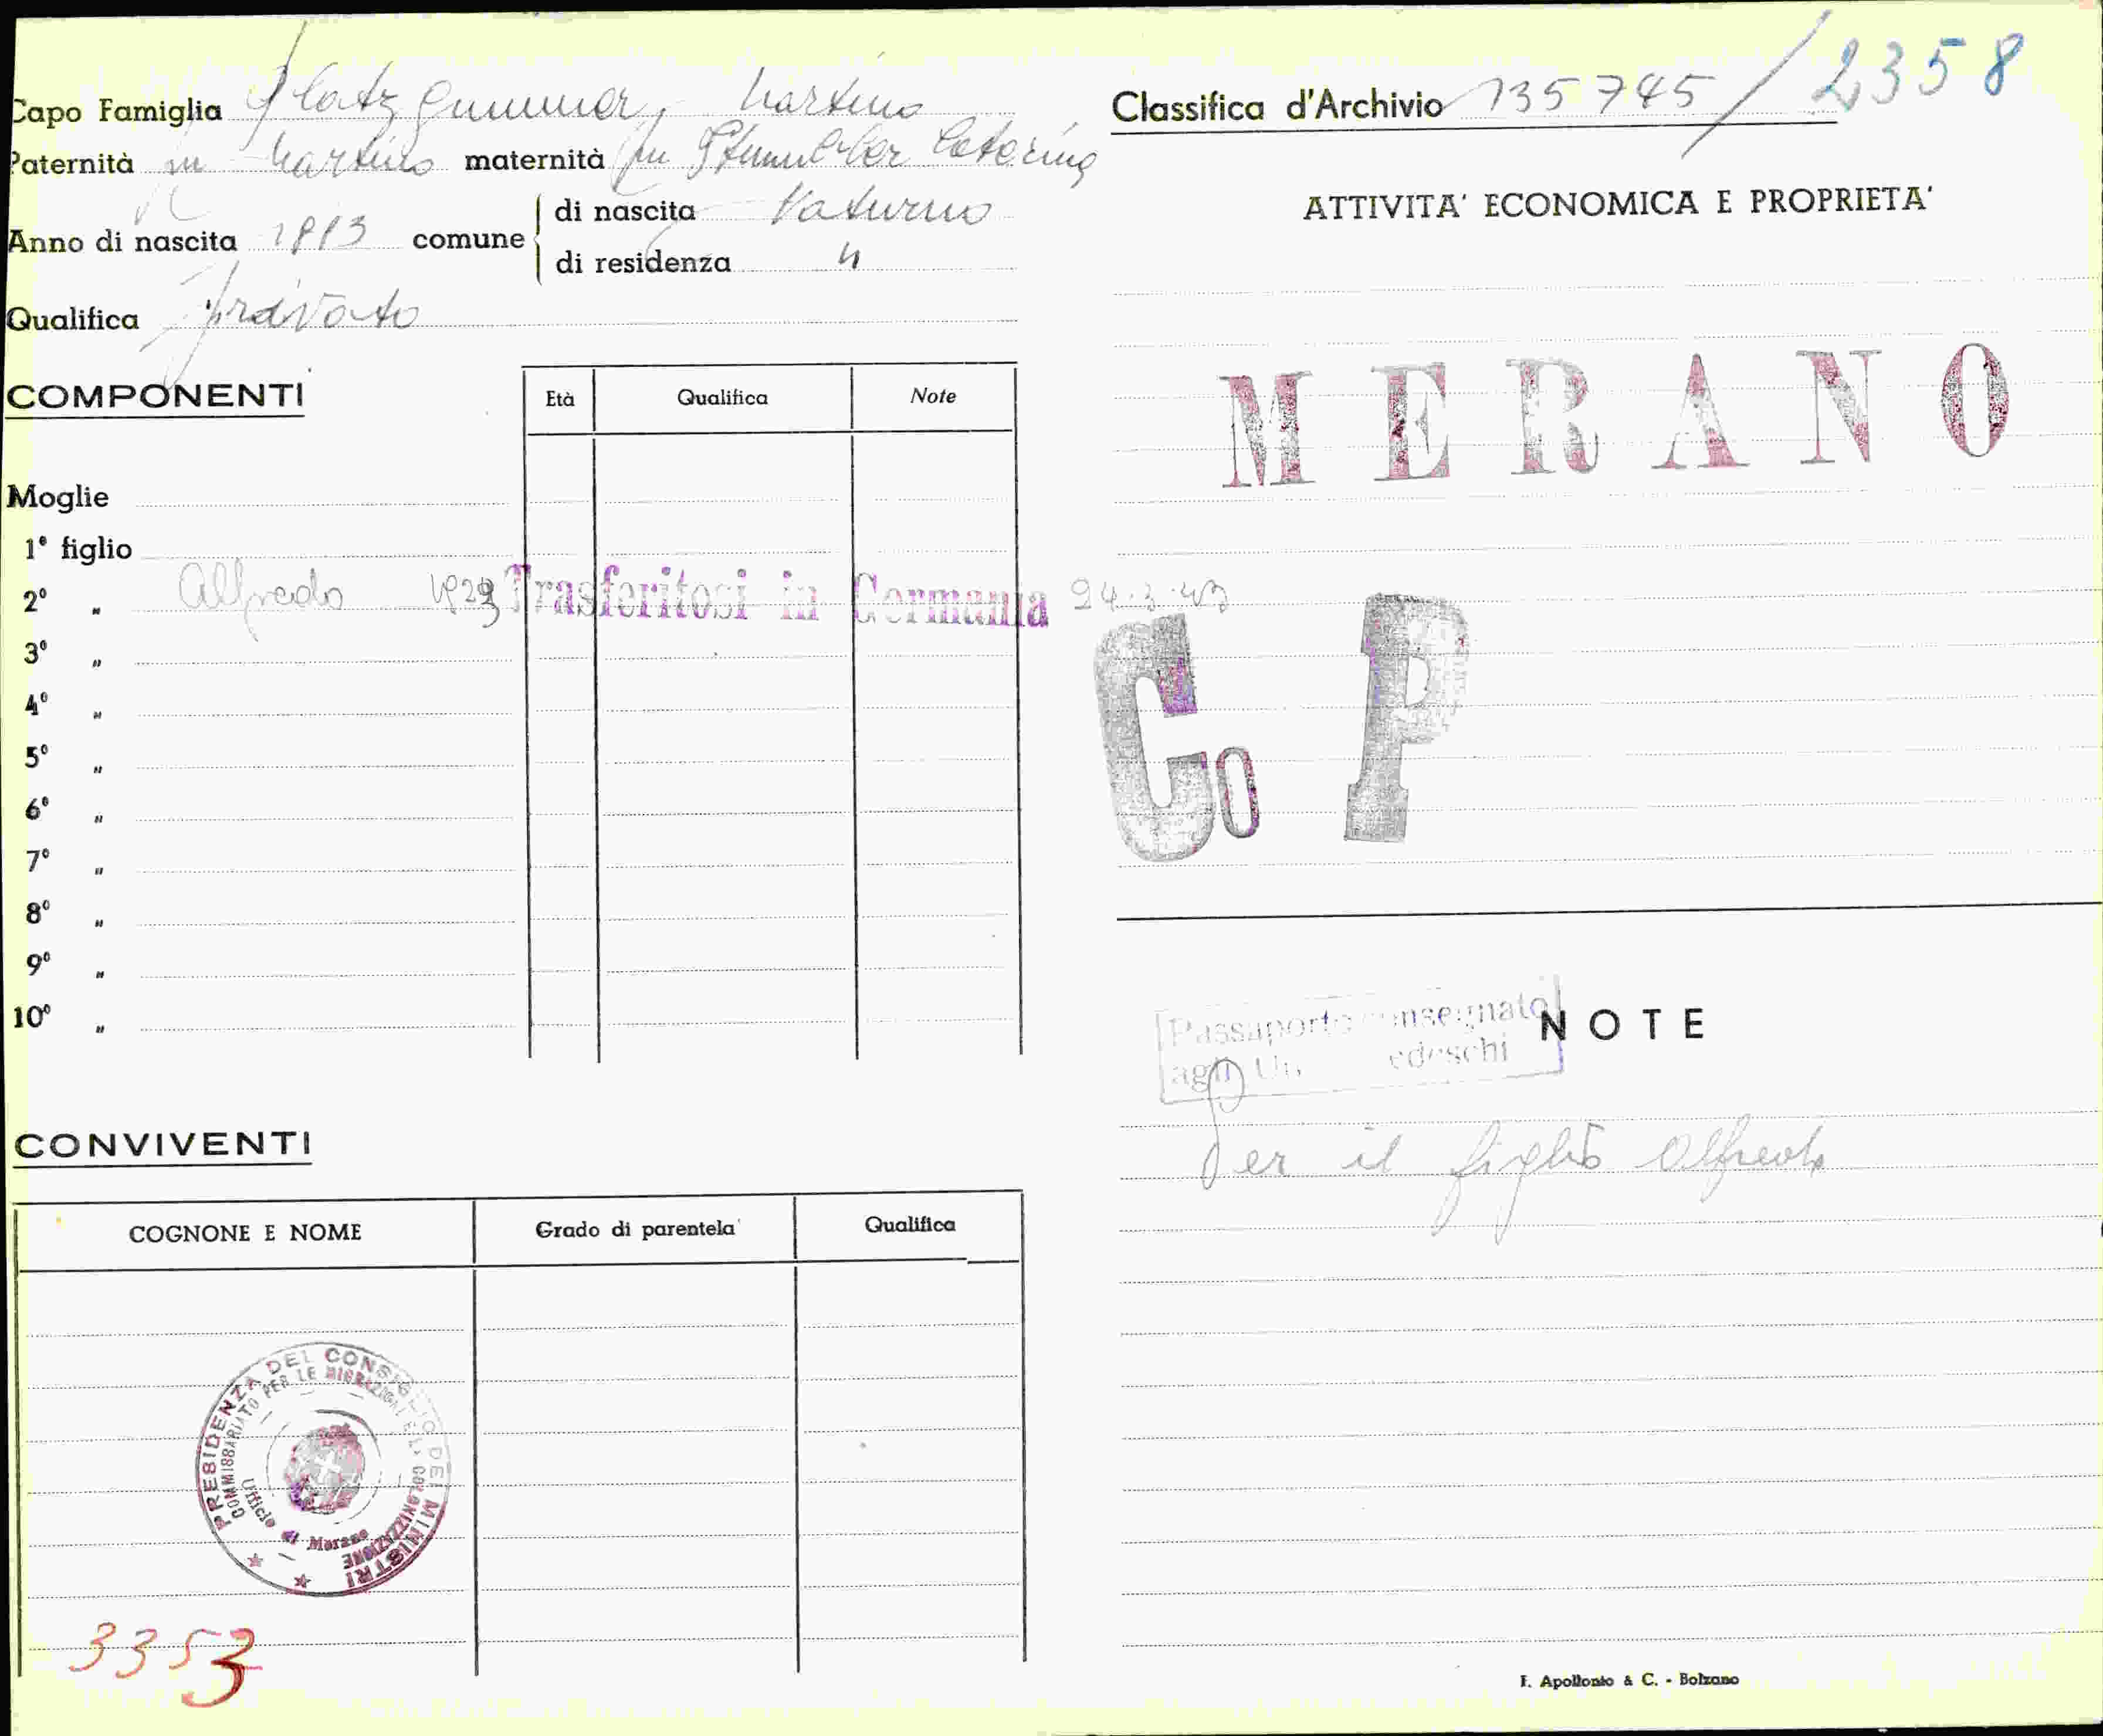 Capo Famiglia Platzgummer, Martino
Paternità fu Martino maternità fu
Anno di nascita comune di nascita Naturno
di residenza "
Qualifica privato
COMPONENTI Età Qualifica Note
Moglie
1° figlio
2° " Alfredo 1929 Trasferitosi in Germania 24.3.43
3° "
4° "
5° "
6° "
7° "
8° "
9° "
10° "
CONVIVENTI
COGNONE E NOME Grado di parentela Qualifica
PRESIDENZA DEL CONSIGLIO DEI MINISTRI
COMMISSARIATO PER LE MIGRAZIONI E L. COLONIZZAZIONE
Ufficio di Merano
3353
Classifica d'Archivio 135745/2358
ATTIVITA' ECONOMICA E PROPRIETA'
MERANO
Co P
NOTE
Passaporto consegnato
agli tedeschi
Per il figlio Alfredo
F. Apollonio & C. - Bolzano